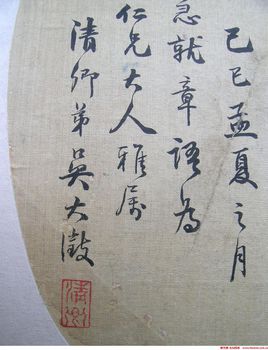 己巳孟夏之月
急就章語為
仁兄大人雅屬
清卿弟吳大澂
清卿